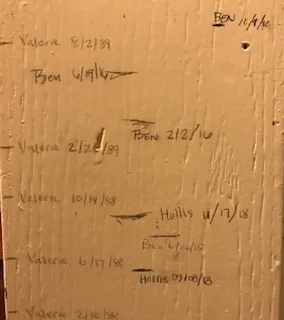 BEN
Valerie 8/2/89
Ben 6/19/16
BEN 2/2/16
Valerie 2/26/89
Valerie 10/14/88
Hollis 11/17/18
Ben
Valerie 6/17/88
Hollis 09/08/18
Valerie